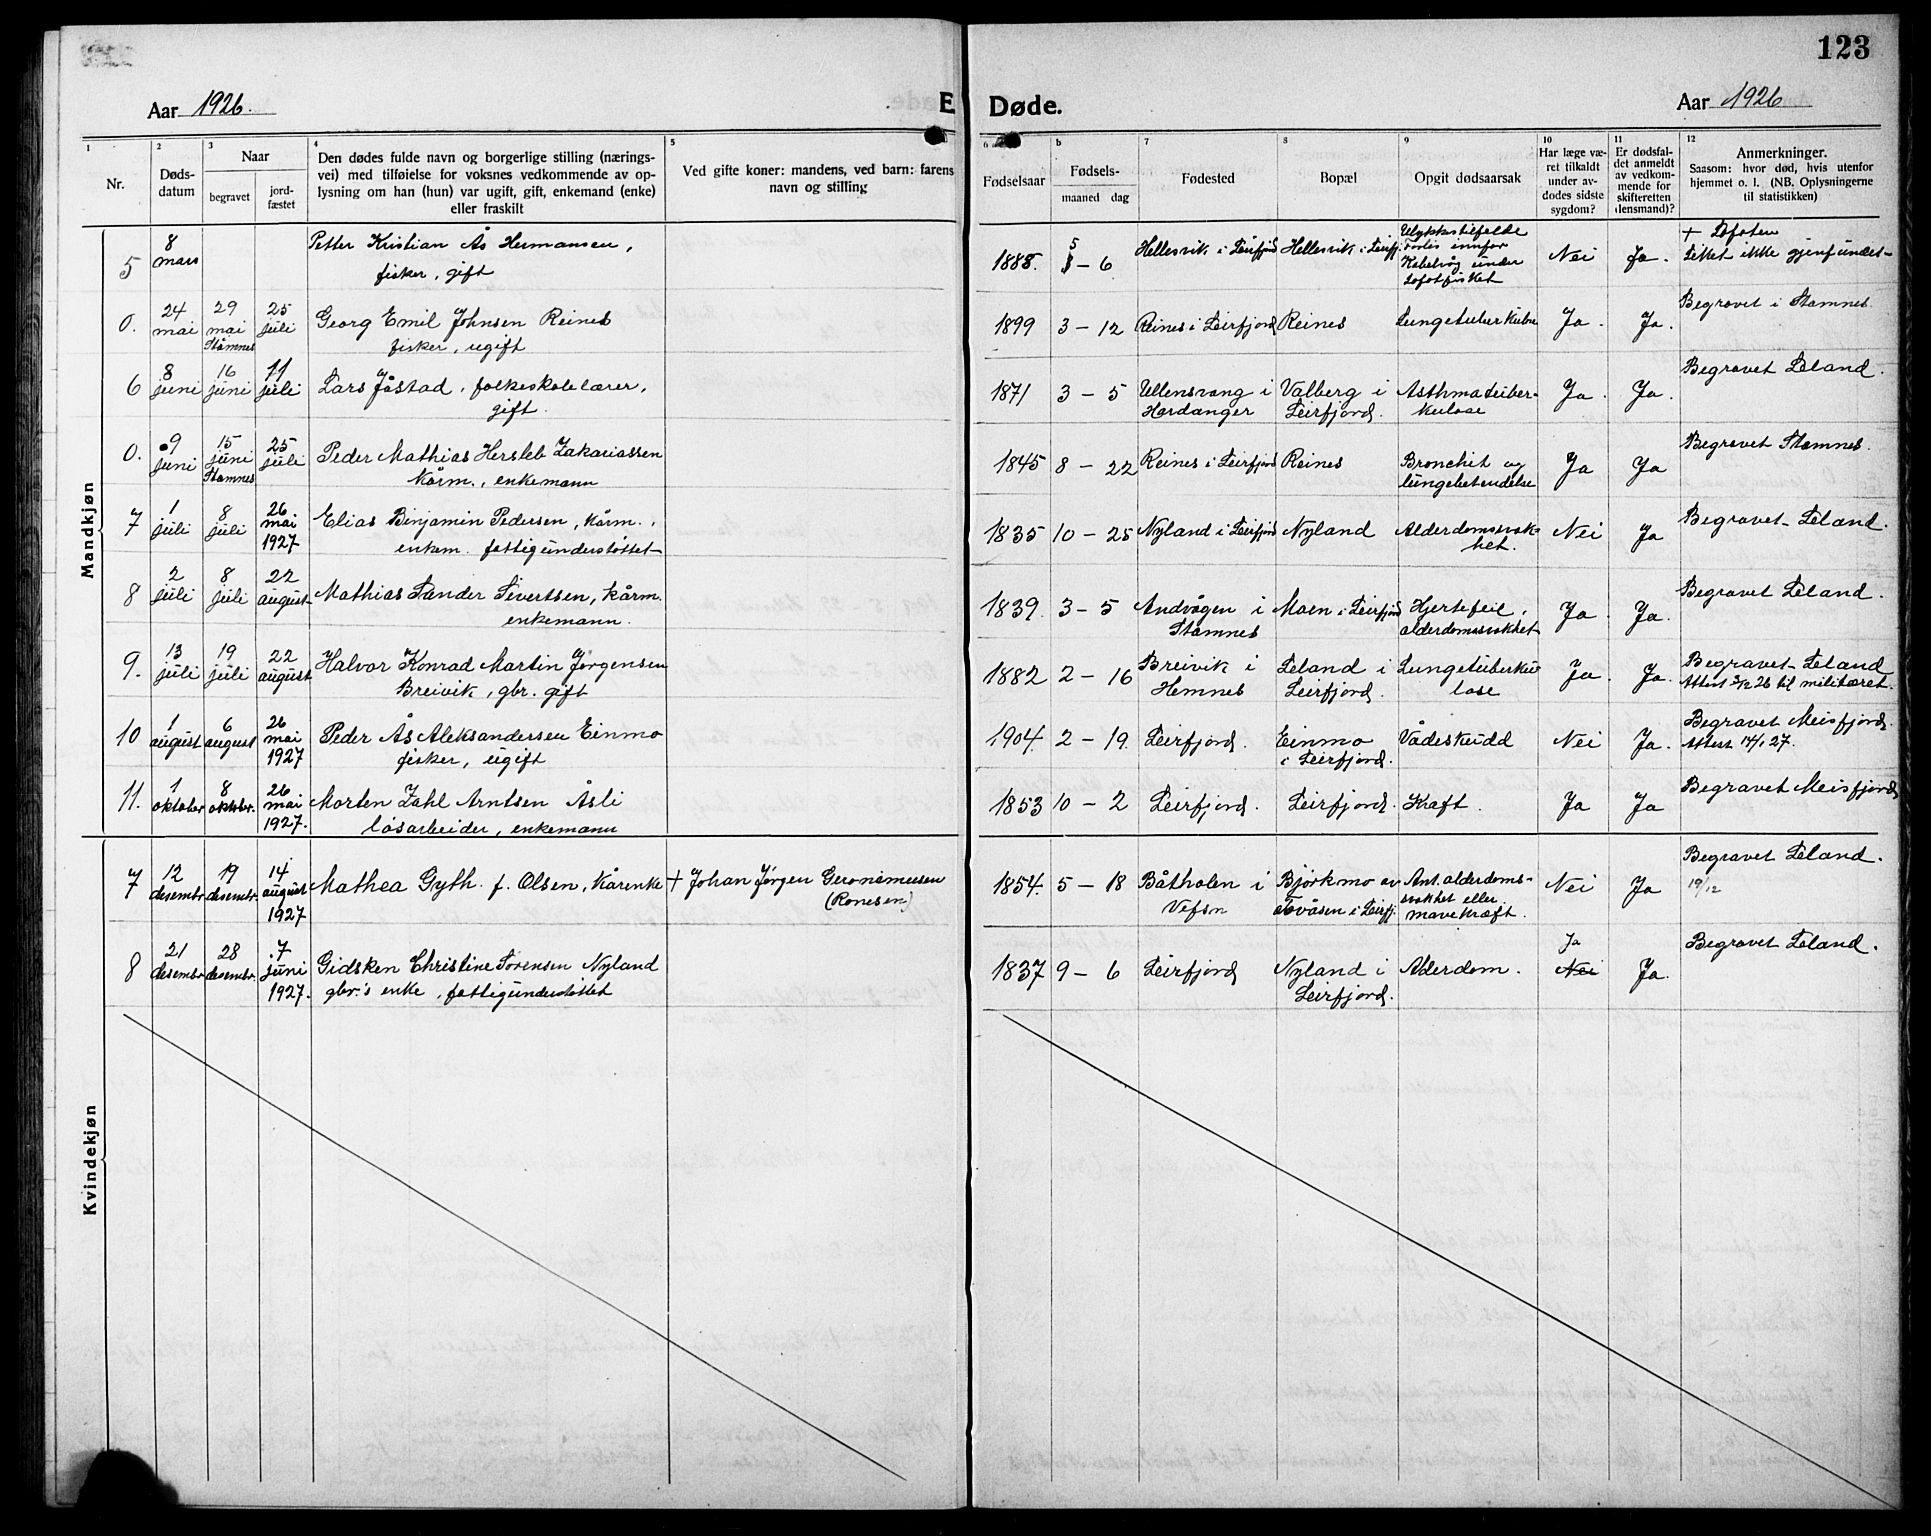 123
Aar 1926.
E
Døde.
Aar 1926
1
Nr.
2
Døds-
datum
3
Naar
begravet
jord-
fæstet
4
Den dødes fulde navn og borgerlige stilling (nærings-
vei) med tilføielse for voksnes vedkommende av op-
lysning om han (hun) var ugift, gift, enkemand (enke)
eller fraskilt
5
Ved gifte koner: mandens, ved barn: farens
navn og stilling
6
Fødselsaar
b
Fødsels-
maaned dag
7
Fødested
8
Bopæl
9
Opgit dødsaarsak
10
Har læge væ-
ret tilkaldt
under av-
dødes sidste
sygdom?
11
Er dødsfal-
det anmeldt
av vedkom-
mende for
skifteretten
(lensmand)?
12
Anmerkninger.
Saasom: hvor død, hvis utenfor
hjemmet o. l. (NB. Oplysningerne
til statistikken)
Mandkjøn
5
8
mars
Petter Kristian Ås Hermansen,
fisker, gift
1888.
5 – 6
Hellesvik i Leirfjord
Hellesvik i Leirfj.
Ulykkestilfelde
Forlis innfor
Kabelvåg under
Lofotfisket
Nei
Ja.
+ Lofoten
Liket ikke gjenfundet
0.
24
mai
29
mai
Stamnes
25
juli
Georg Emil Johnsen Reines
fisker, ugift
1899
3 – 12
Reines i Leirfjord
Reines
Lungetuberkulose
Ja.
Ja.
Begravet i Stamnes
6
8
juni
16
juni
11
juli
Lars Jåstad, folkeskolelærer,
gift.
1871
3 – 5
Ullensvang i
Hardanger
Valberg i
Leirfjord.
Asthma tuber-
kulose
Ja.
Ja.
Begravet Leland.
0.
9
juni
15
juni
Stamnes
25
juli
Peder Mathias Hersleb Zakariassen
Kårm., enkemann
1845
8 – 22
Reines i Leirfjord
Reines
Bronchit og
lungebetendelse
Ja
Ja
Begravet Stamnes.
7
1
juli
8
juli
26
mai
1927
Elias Binjamin Pedersen, kårm.,
enkem. fattigunderstøttet
1835
10 – 25
Nyland i Leirfjord
Nyland
Alderdomssvak-
het.
Nei
Ja
Begravet Leland.
8
2
juli
8
juli
22
august
Mathias Sander Sivertsen, kårm.
enkemann.
1839.
3 – 5
Andvågen i
Stamnes
Moen i Leirfjord
Hjertefeil,
alderdomssvakhet
Ja.
Ja.
Begravet Leland.
9.
13
juli
19
juli
22
august
Halvor Konrad Martin Jørgensen
Breivik, gbr. gift
1882
2 – 16
Breivik i
Hemnes
Leland i
Leirfjord.
Lungetuberku-
lose
Ja.
Ja.
Begravet Leland
Attest 2/12 26 til militæret.
10
1
august
6
august
26
mai
1927
Peder Ås Aleksandersen Einmo
fisker, ugift
1904.
2 – 19.
Leirfjord.
Einmo
i Leirfjord.
Vådeskudd
Nei
Ja.
Begravet Meisfjord.
Attest 14/1 27.
11.
1
oktober
8
oktbr.
26
mai
1927.
Morten Zahl Arntsen Åsli
løsarbeider, enkemann
1853
10 – 2
Leirfjord.
Leirfjord.
Kræft.
Ja
Ja
Begravet Meisfjord
Kvindekjøn
7
12
desembr.
19
desembr.
14
august
1927
Mathea Gyth. f. Olsen, kårenke
+ Johan Jørgen Geronimusen
(Ronesen)
1854.
5 – 18
Båtholen i
Vefsn
Bjørkmo av
Tovåsen i Leirfj.
Ant. alderdoms-
svakhet eller
mavekræft.
Nei
Ja
Begravet Leland.
19/12
8
21
desembr.
28
desembr.
7
juni
1927.
Gidsken Christine Sørensen Nyland
gbr.'s enke, fattigunderstøttet
1837
9 – 6
Leirfjord
Nyland i
Leirfjord.
Alderdom.
Ja
Nei
Ja.
Begravet Leland.